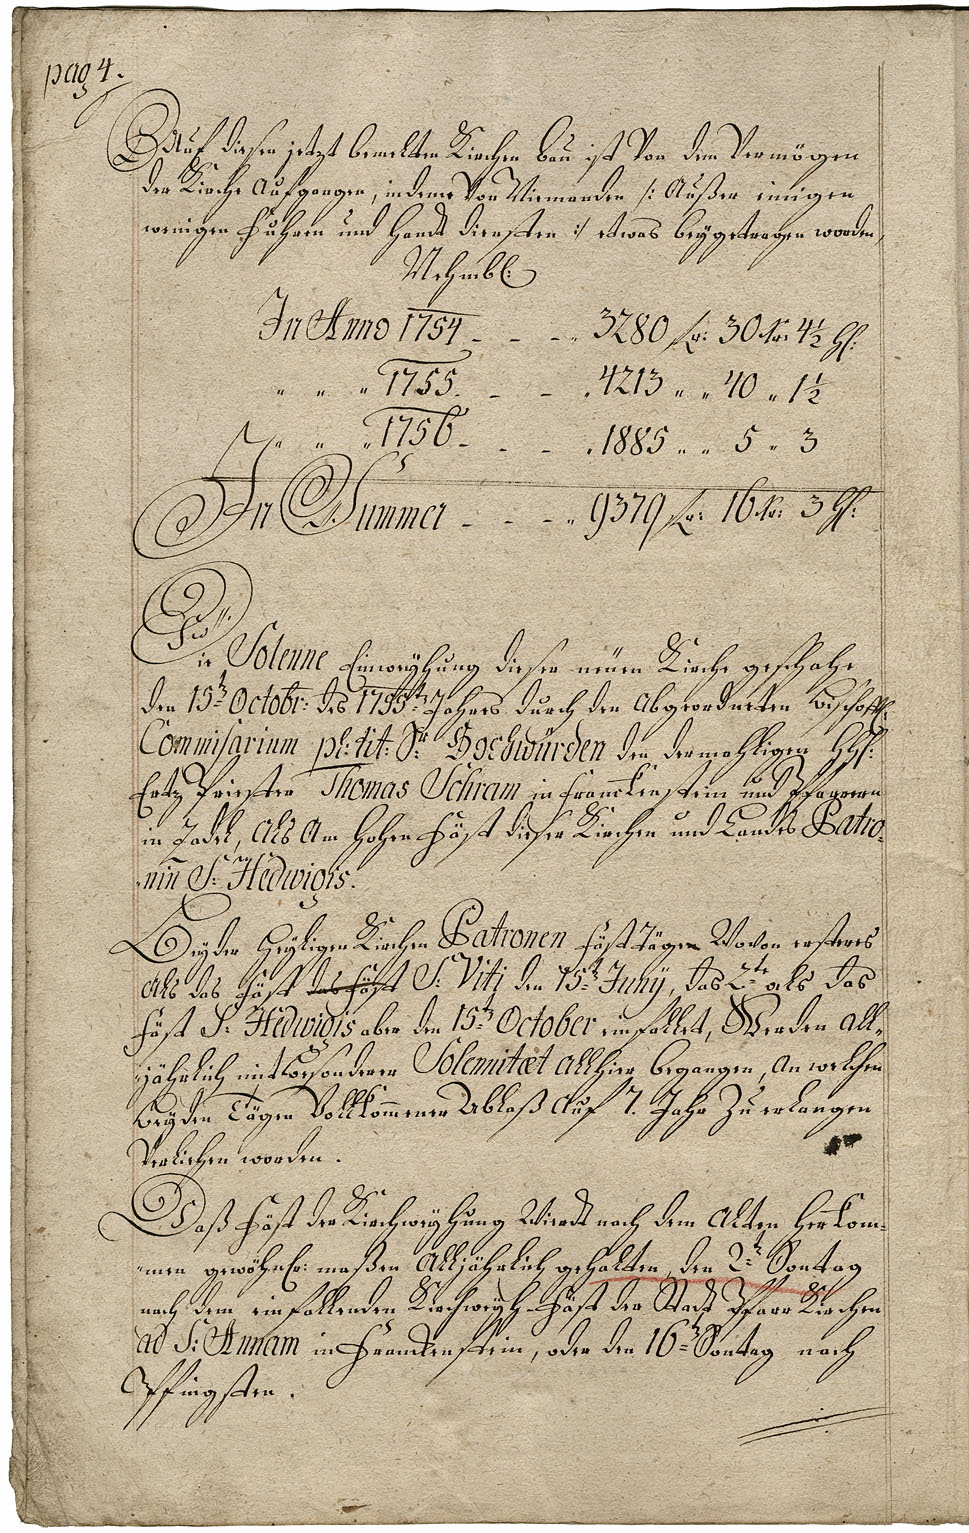 pag 4.
Auf diesen jetzt bemelten Kirchen bau ist Von dem Vermögen
der Kirche Aufgangen, indeme Von Niemanden /: Außer einigen
wenigen Fuhren und Handt diensten :/ etwas beÿgetragen worden,
Nehmbl:
In Anno 1754 - - - „ 3280 fl: 30 Kr: 4½ hl:
„ „ „ 1755. - - „ 4213 „ „ 40 „ 1½
„ „ „ 1756 - - - „ 1885 „ „ 5 „ 3
In Summer - - - „ 9379 fl: 16 Kr: 3 hl:
Die Solenne Einweÿhung dieser neüen Kirche geschahe
den 15t Octobr: des 1755t Jahres durch den Abgeordneten Bischöffl:
Commisarium pl: tit: Sr Hochwürden den dermahligen HH:
Ertz Priester Thomas Schram in Franckenstein und Pfarrern
in Zadel, Als Am Hohen Fäst dieser Kirchen und Landes Patro-
nin S: Hedwigis.
Beÿder Heÿligen Kirchen Patronen Fäst Tägen Wovon ersteres
Als das Fäst das Fäst S: Viti den 15t Junÿ, das 2te als das
Fäst S: Hedwigis aber den 15t October einfallet, Werden all-
jährlich mit besonderer Solemitæt allhier begangen, An welchen
beÿden Tägen Vollkommener Ablaß auf 7. Jahr Zu erlangen
Verliehen worden.
Daß Fäst der Kirchweÿhung Wierdt nach dem Alten Herkom-
men gewöhnl: maßen Alljährlich gehalten, den 2t Sontag
nach dem einfallenden Kirchweÿh-Fäst der Stadt Pfarr Kirchen
ad S: Annam in Franckenstein, oder den 16t Sontag nach
Pfingsten.